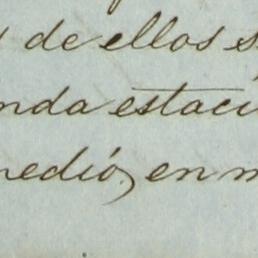 de ellos s
nda estaci
nedió, en m